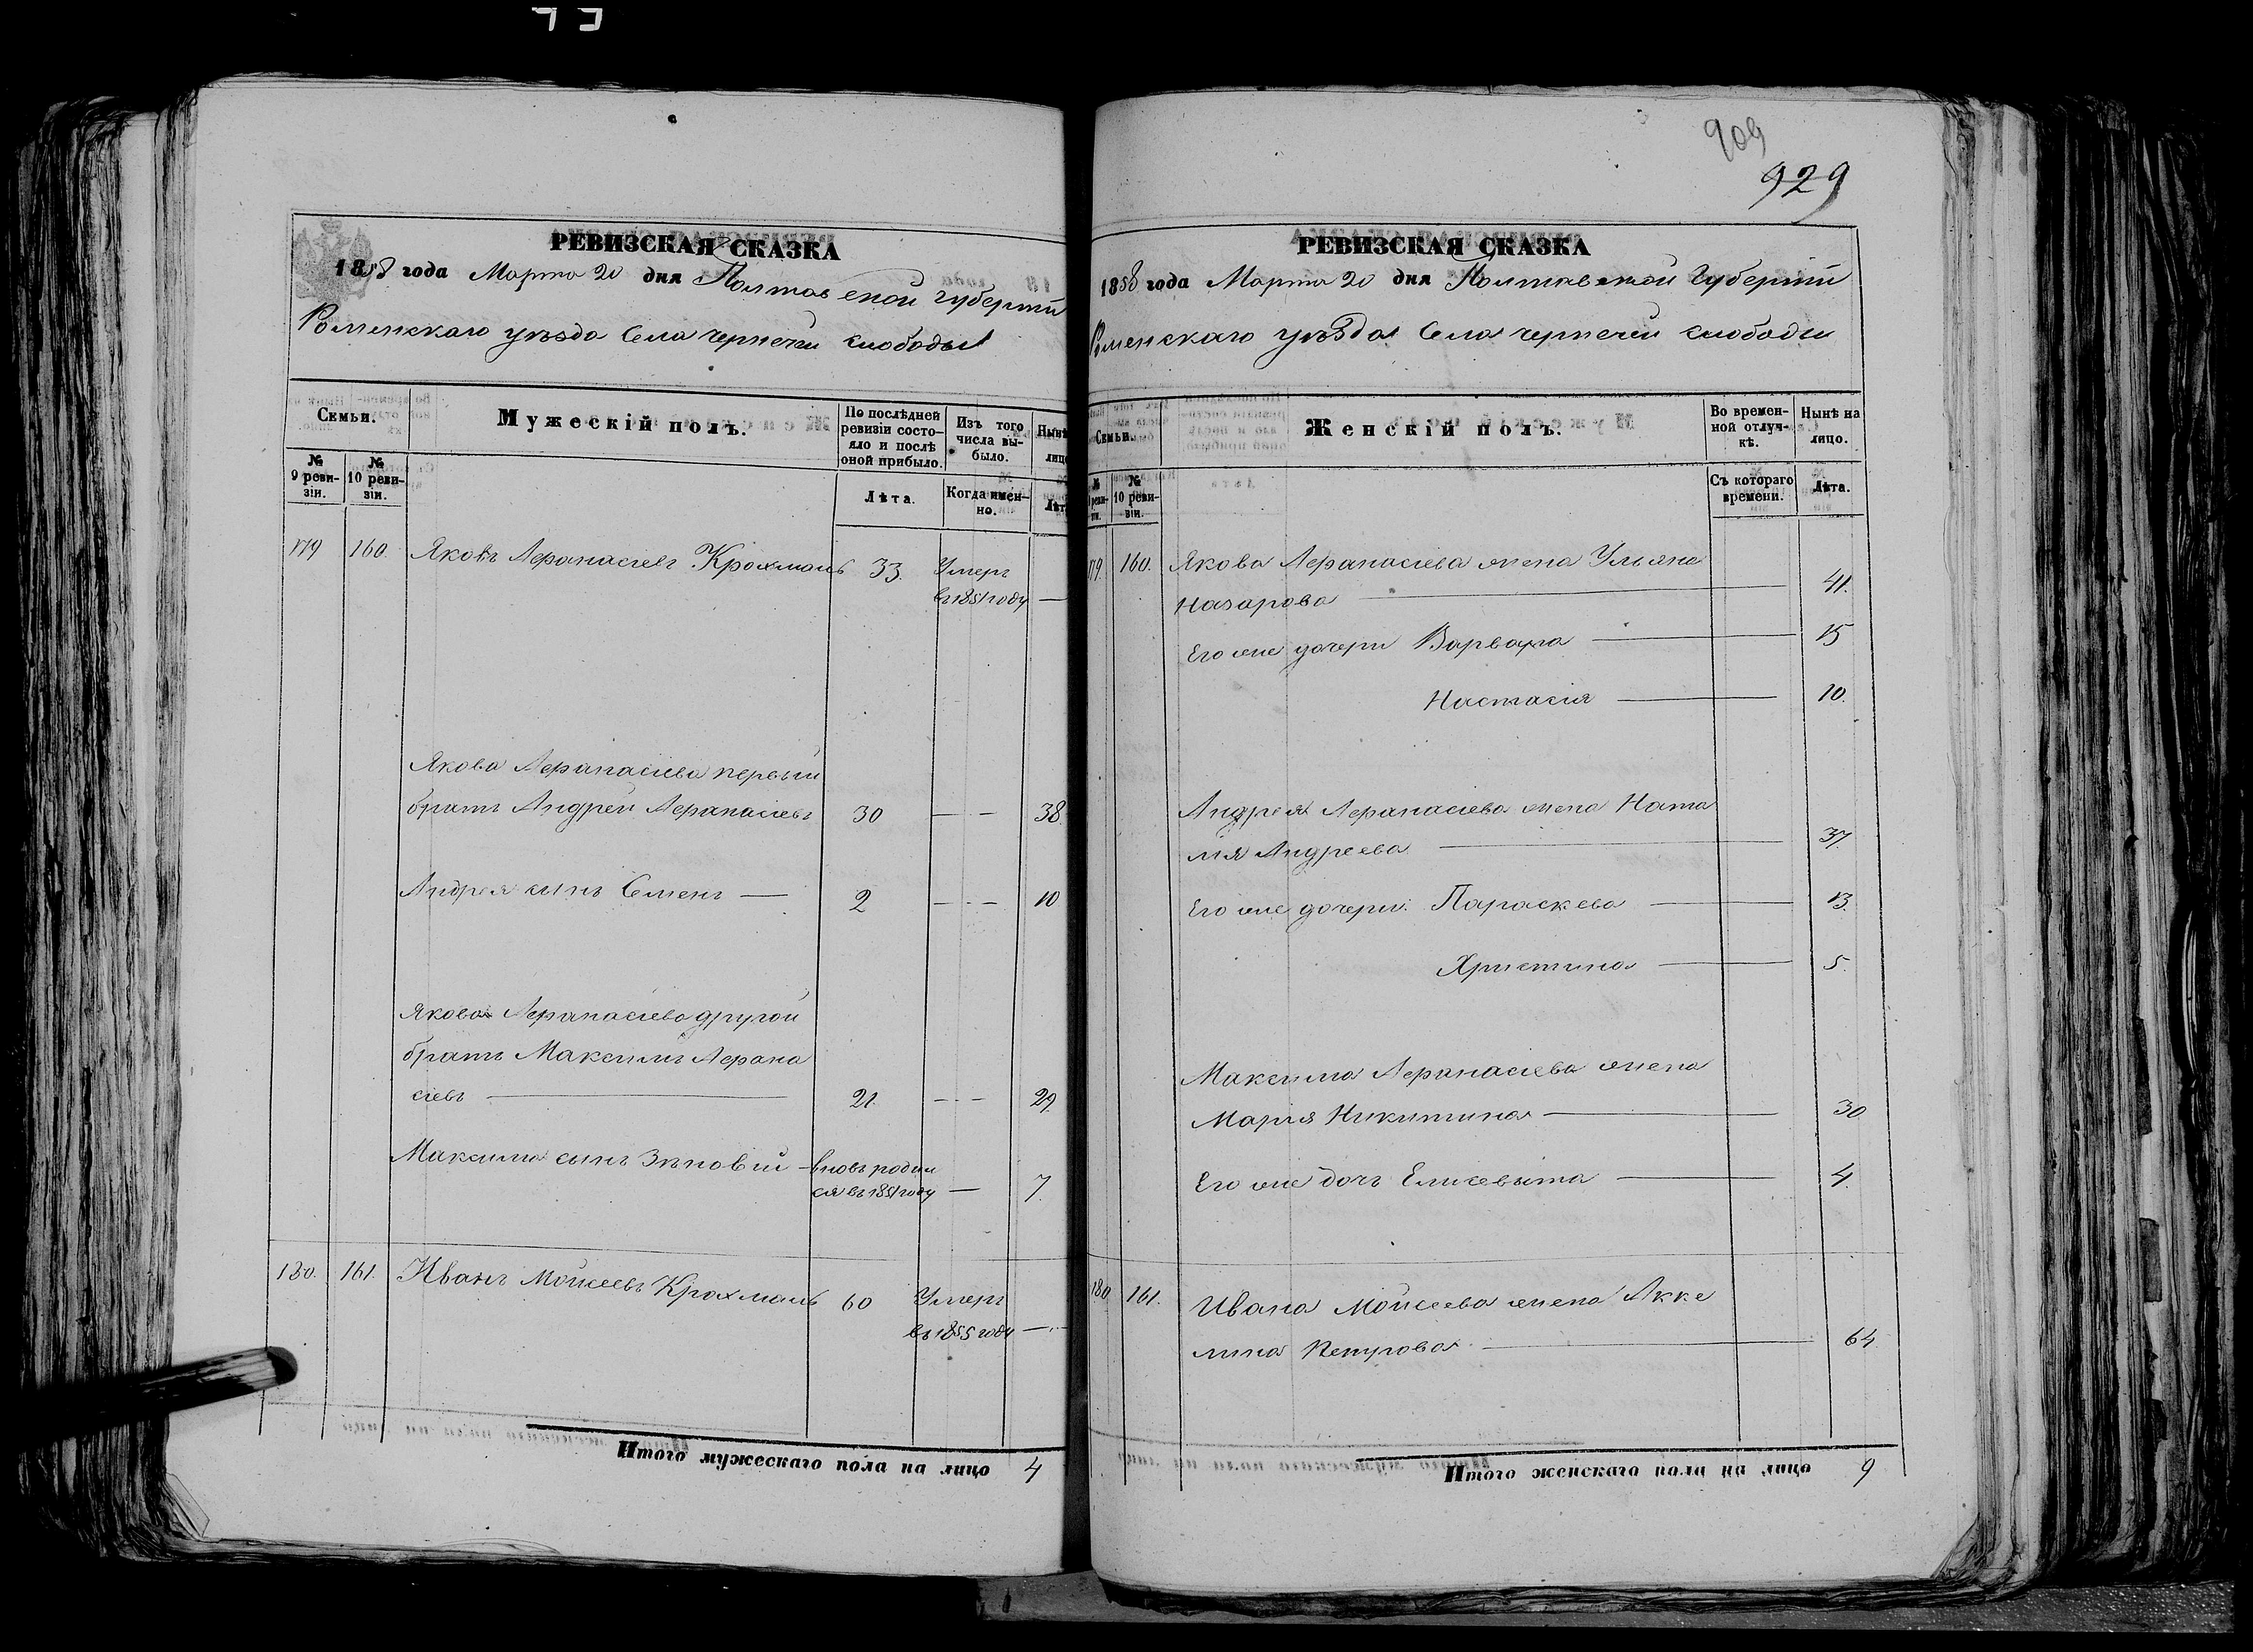 РЕВИЗСКАЯ СКАЗКА
1858 года Марта 20 дня Полтавской Губерніи
Роменскаго уѣзда Села чернечей слободы
Семьи.
Мужескій полъ.
По послѣдней ревизіи состояло и послѣ оной прибыло.
Изъ того числа выбыло.
Нынѣ
лицо
№ 9 ревизіи.
№ 10 ревизіи.
Лѣта.
Когда именно.
Лѣт
179 160. Яковъ Афанасіевъ Крохмаль 33. Умеръ
въ 1851 году —
Якова Афанасіева первый
братъ Андрей Афанасіевъ 30 — — 38.
Андрея сынъ Семенъ — 2 — — 10
Якова Афанасіева другой
братъ Максимъ Афана
сіевъ — 21. — — 29.
Максима сынъ Зѣновій — вновь родил
ся въ 1851 году — 7.
180. 161. Иванъ Мойсеевъ Крохмаль 60 Умеръ
въ 1855 году —
Итого мужескаго пола на лицо 4
909
929
РЕВИЗСКАЯ СКАЗКА
1858 года Марта 20 дня Полтавской Губерніи
Роменскаго уѣзда Села чернечей слободы
Семьи.
Женскій полъ.
Во временной отлучкѣ.
Нынѣ на лицо.
№ 10 ревизіи.
Съ котораго времени.
Лѣта.
179. 160. Якова Афанасіева жена Ульяна
Назарова — 41.
Его же дочери Варвара — 15
Настасія — 10.
Андрея Афанасіева жена Ната
лія Андреева — 37.
Его же дочери: Параскева — 13.
Христина — 5.
Максима Афанасіева жена
Марія Никитина — 30
Его же дочь Елисевѣта — 4.
180. 161. Ивана Мойсеева жена Акке
лина — 64
Итого женскаго пола на лицо 9